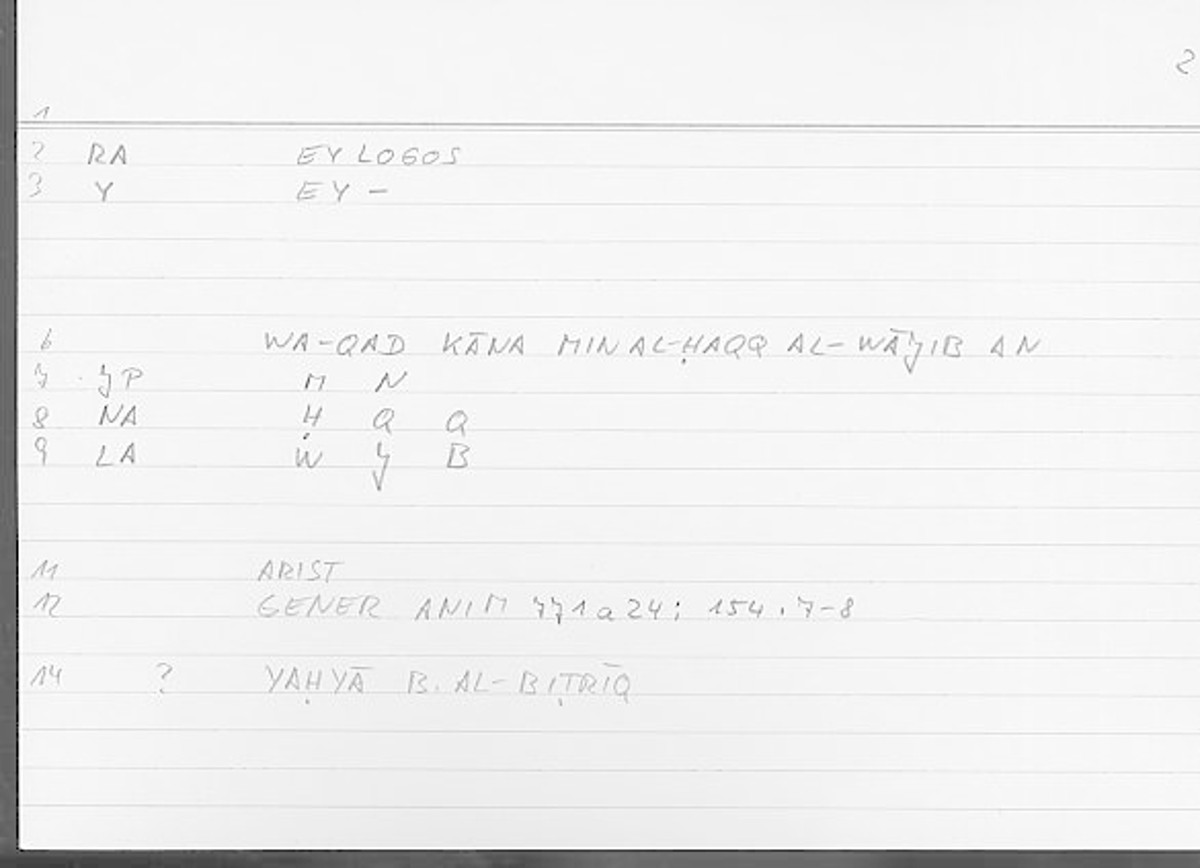 2
1
2 RA EY LOGOS
3 Y EY -
6 WA-QAD KĀNA MIN AL-ḤAQQ AL-WĀJIB AN
7 JP M N
8 NA Ḥ Q Q
9 LA W J B
11 ARIST
12 GENER ANIM 771a24; 154.7-8
14 ? YAḤYĀ B. AL-BIṬRĪQ